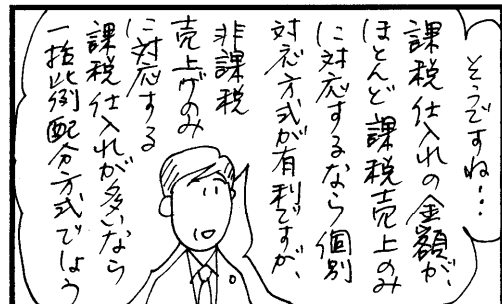 そうですね…
課税仕入れの金額が、
ほとんど課税売上のみ
に対応するなら個別
対応方式が有利ですが、
非課税
売上げのみ
に対応する
課税仕入れが多いなら
一括比例配分方式でしょう